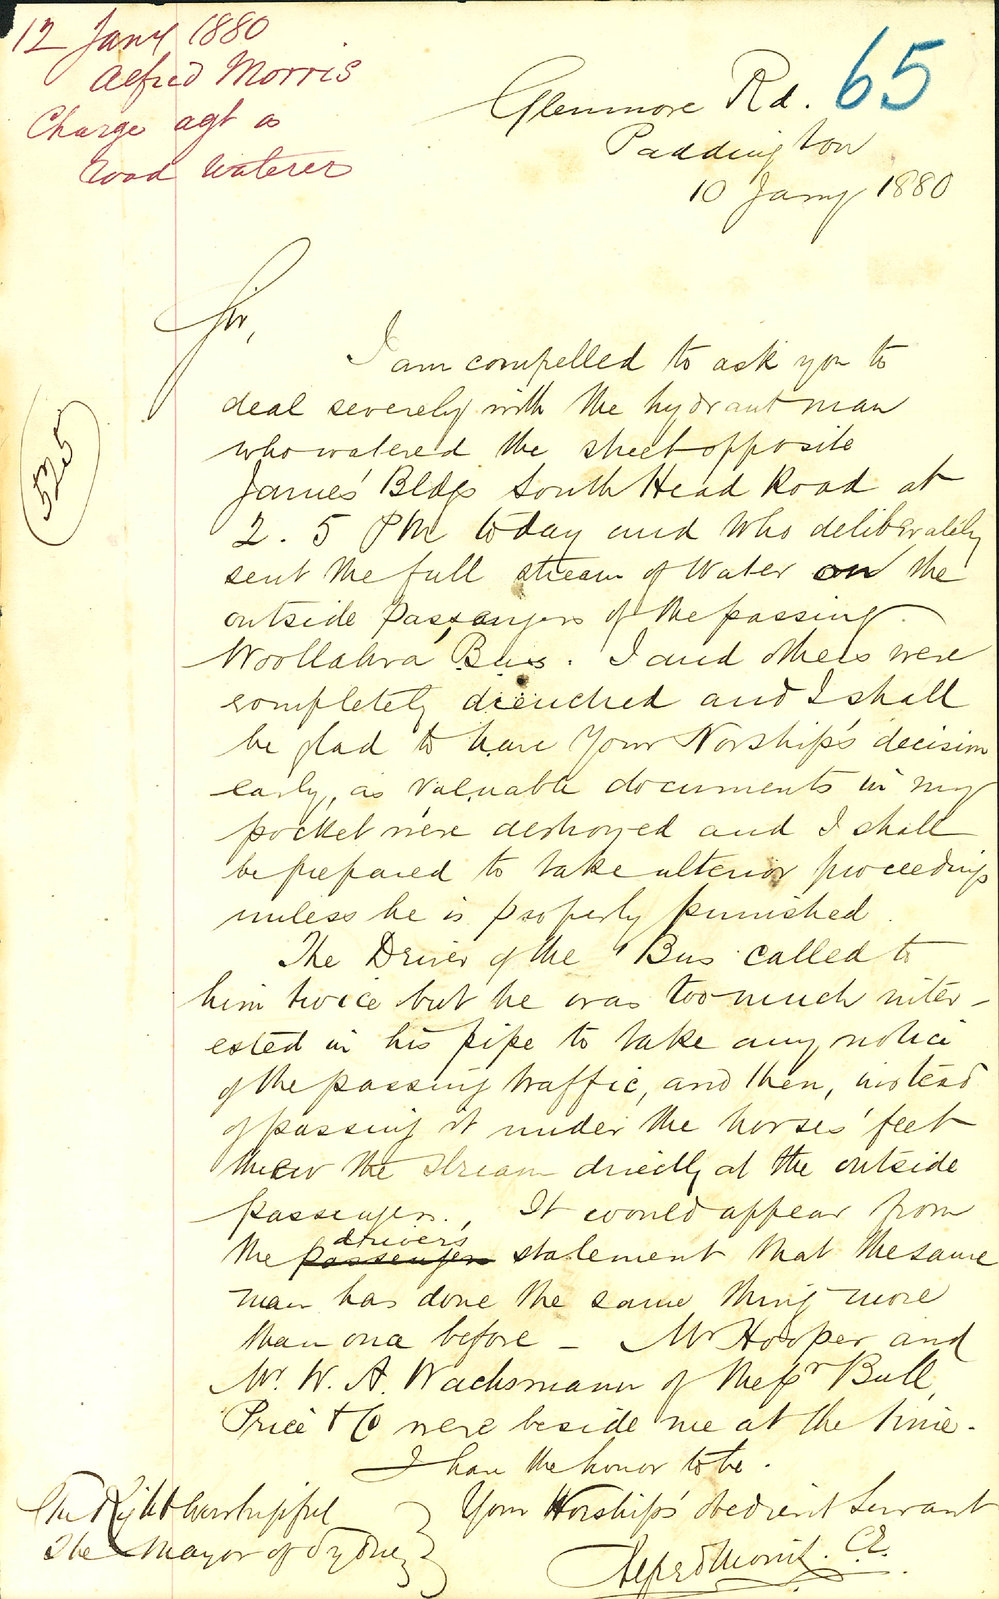 12 Jany 1880
Alfred Morris
Charge agt a
Road Waterer
65
Glenmore Rd.
Paddington
10 Jany 1880
525
Sir,
I am compelled to ask you to
deal severely with the hydrant man
who watered the street opposite
James' Bldgs South Head Road at
2.5 PM today and who deliberately
sent the full stream of Water on the
outside passengers of the passing
Woollahra Bus. I and others were
completely drenched and I shall
be glad to have Your Worship's decision
early, as valuable documents in my
pocket were destroyed and I shall
be prepared to take ulterior proceedings
unless he is properly punished.
The Driver of the 'Bus called to
him twice but he was too much inter-
ested in his pipe to take any notice
of the passing traffic, and then, instead
of passing it under the horses' feet
threw the stream directly at the outside
passengers. It would appear from
drivers
the passengers statement that the same
man has done the same thing more
than once before - Mr Hooper and
Mr. W. A. Wachsmann of Messr Bull,
Price & Co were beside me at the time.
I have the honor to be.
Your Worship's obedient Servant
Alfred Morris. CE.
The Right Worshipful
The Mayor of Sydney